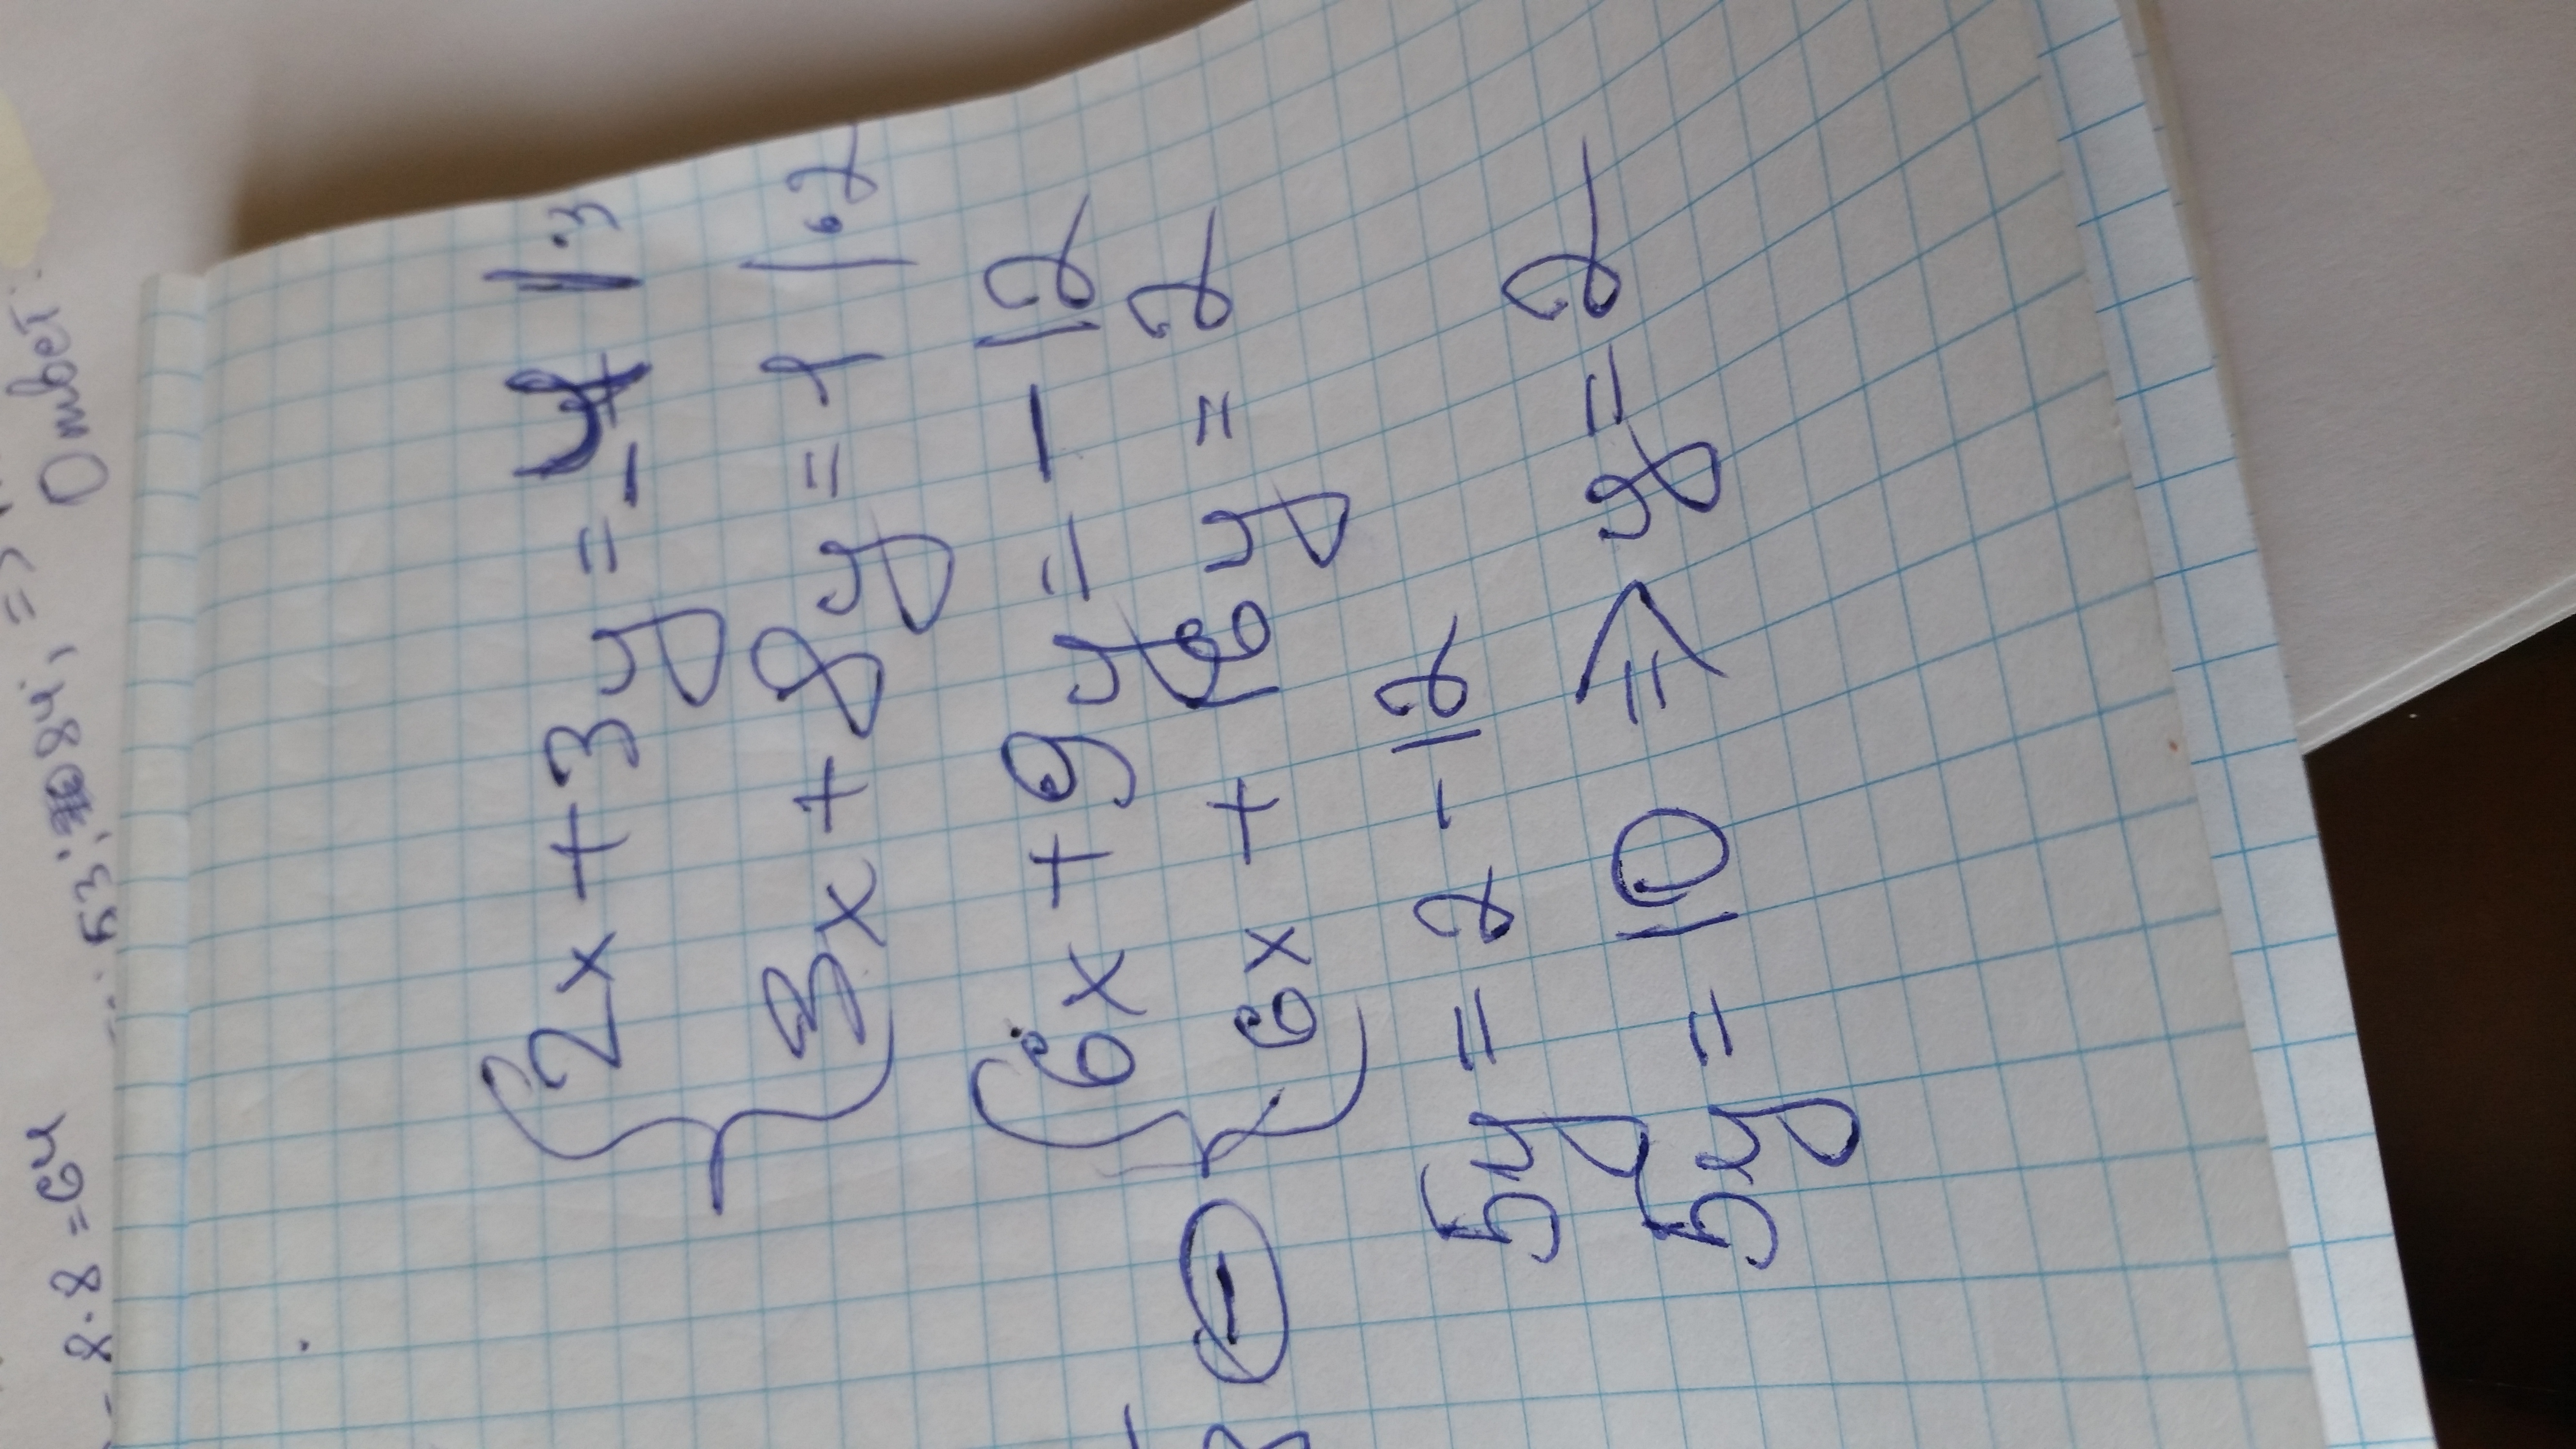 8·8=64
=> Ответ:
2x + 3y = -4 |·3
3x + 8y = 1 |·2
6x + 9y = -12
- 6x + 16y = 2
5y = 2 - 12
5y = 10 => y = 2